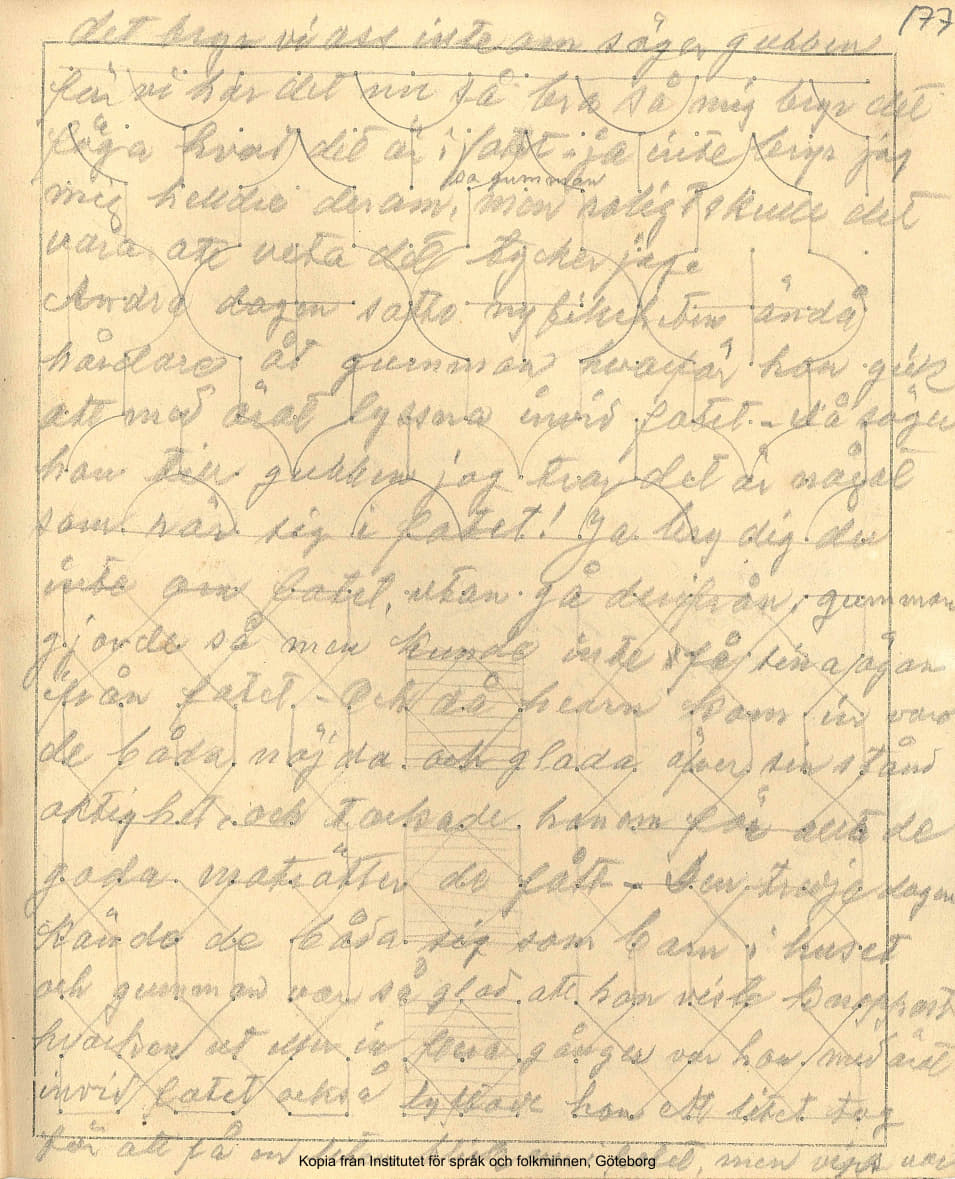 177
det bryr vi oss inte om säger gubben
för vi har det nu så bra så mig bryr det
föga hvad det är i fatet - ja inte bryr jag
sa gumman
mig heldre derom, men roligt skulle det
vara att veta det tycker jag.
Andra dagen satte nyfikenheten ändå
hårdare åt gumman hvarför hon gick
att med örat lyssna invid fatet - då säger
hon till gubben jag tror det är något
som rör sig i fatet! Ja bry dig du
inte om fatet, utan gå derifrån, gumman
gjorde så men kunde inte få sina ögon
ifrån fatet - Och då herrn kom in voro
de båda nöjda och glada öfver sin stånd
aktighet, och tackade honom för alla de
goda maträtter de fått - Den tredje dagen
kände de båda sig som barn i huset
och gumman var så glad att hon viste knappast
hvarken ut eller in flera gånger var hon med örat
invid fatet också lyftade hon ett litet tag
för att få en liten blick i fatet, men vips var
Kopia från Institutet för språk och folkminnen, Göteborg